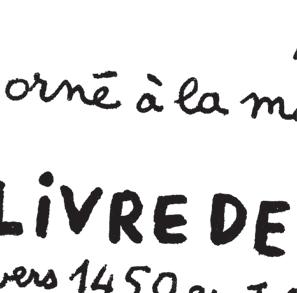 orné à la
LIVRE DE
vers 1450